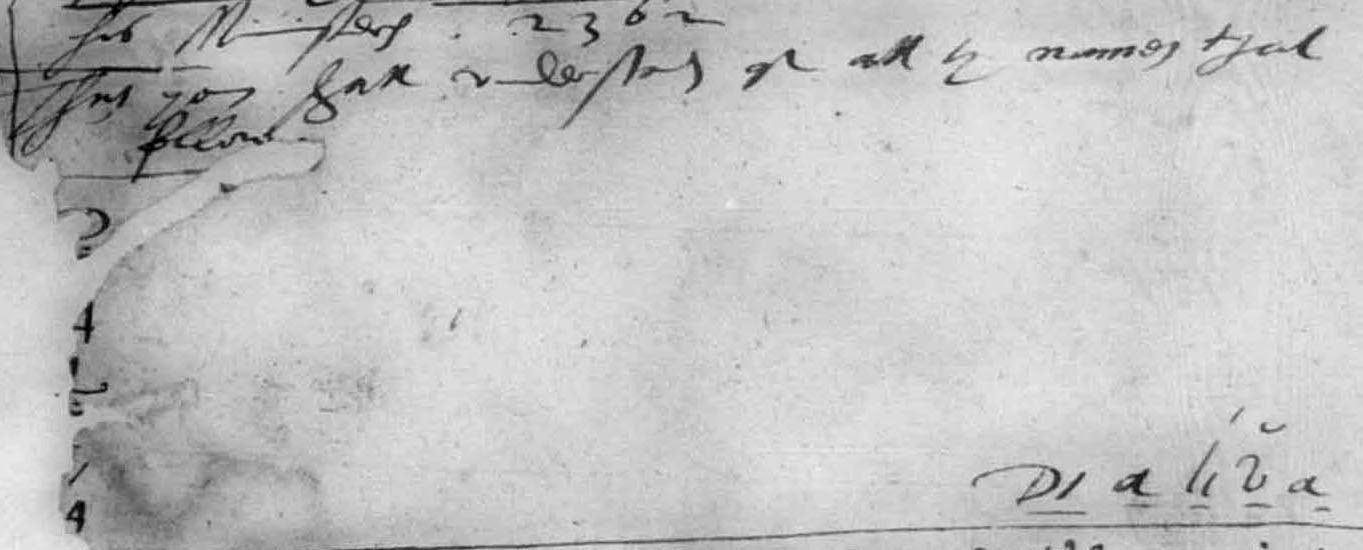 his Ministers . 2362
This you shall understand of all the names that
follow.
4
4
DI a li v a